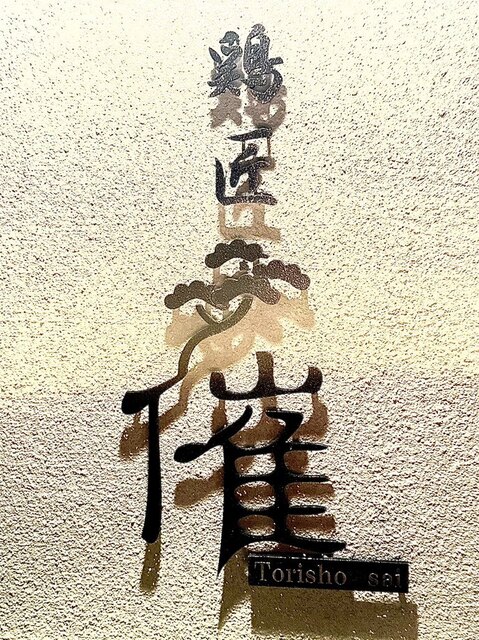 鶏
匠
催
Torisho sai